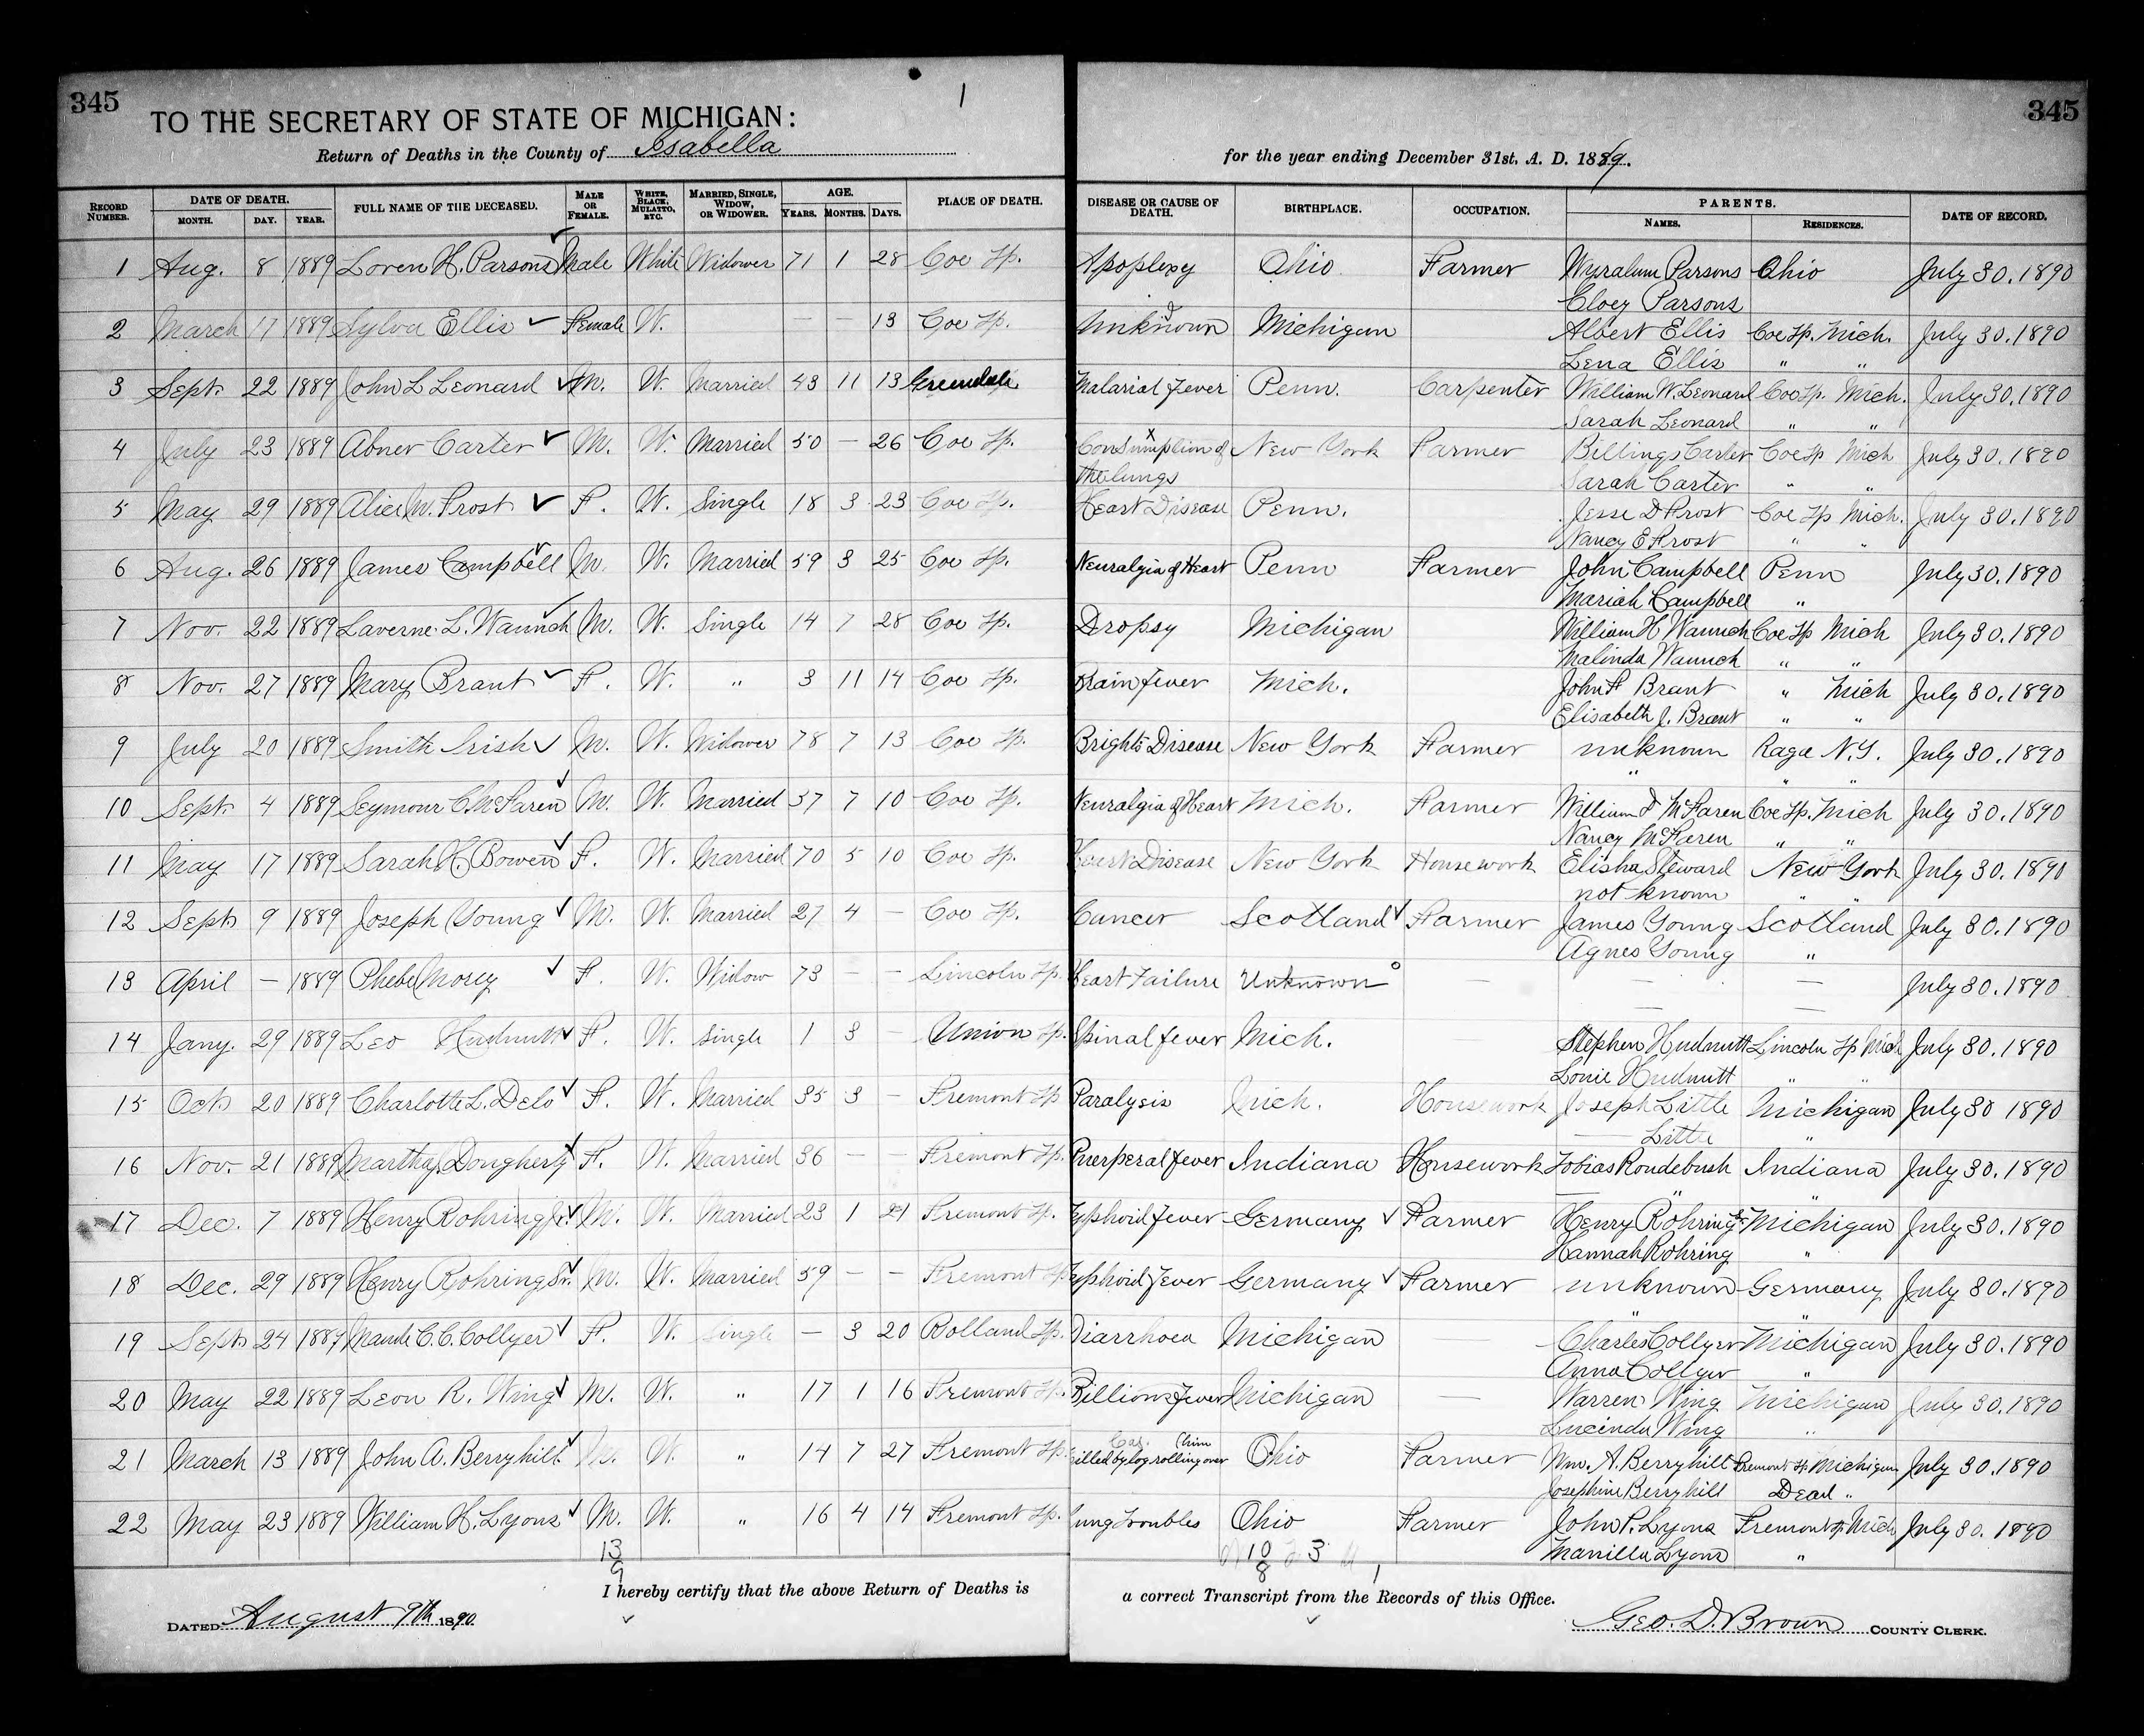 345
1
345
TO THE SECRETARY OF STATE OF MICHIGAN:
Return of Deaths in the County of Isabella for the year ending December 31st, A. D. 1889.
RECORD NUMBER. DATE OF DEATH. MONTH. DAY. YEAR. FULL NAME OF THE DECEASED. MALE OR FEMALE. WHITE, BLACK, MULATTO, ETC. MARRIED, SINGLE, WIDOW, OR WIDOWER. AGE. YEARS. MONTHS. DAYS. PLACE OF DEATH. DISEASE OR CAUSE OF DEATH. BIRTHPLACE. OCCUPATION. PARENTS. NAMES. RESIDENCES. DATE OF RECORD.
1 Aug. 8 1889 Loren H. Parsons Male White Widower 71 1 28 Coe Tp. Apoplexy Ohio Farmer Parsons Ohio July 30, 1890
Cloey Parsons
2 March 17 1889 Sylva Ellis Female W. — — 13 Coe Tp. Unknown Michigan Albert Ellis Coe Tp. Mich. July 30, 1890
Lena Ellis " "
3 Sept. 22 1889 John L Leonard M. W. Married 43 11 13 Greendale Malarial Fever Penn. Carpenter William W. Leonard Coe Tp. Mich. July 30, 1890
Sarah Leonard " "
4 July 23 1889 Abner Carter M. W. Married 50 — 26 Coe Tp. Consumption of New York Farmer Billings Carter Coe Tp Mich July 30, 1890
the lungs Sarah Carter " "
5 May 29 1889 Alice M. Frost F. W. Single 18 3 23 Coe Tp. Heart Disease Penn. Jesse D Frost Coe Tp Mich. July 30, 1890
Nancy E Frost " "
6 Aug. 26 1889 James Campbell M. W. Married 59 3 25 Coe Tp. Neuralgia of Heart Penn Farmer John Campbell Penn July 30, 1890
Mariah Campbell "
7 Nov. 22 1889 Laverne L. Waunch M. W. Single 14 7 28 Coe Tp. Dropsy Michigan William H Waunch Coe Tp Mich July 30, 1890
Malinda Waunch " "
8 Nov. 27 1889 Mary Brant F. W. " 3 11 14 Coe Tp. Brain fever Mich. John F Brant " Mich July 30, 1890
Elisabeth J. Brant " "
9 July 20 1889 Smith Irish M. W. Widower 78 7 13 Coe Tp. Brights Disease New York Farmer unknown N.Y. July 30, 1890
" " "
10 Sept. 4 1889 Seymour C. McFaren M. W. Married 37 7 10 Coe Tp. Neuralgia of Heart Mich. Farmer William McFaren Coe Tp. Mich July 30, 1890
Nancy McFaren " "
11 May 17 1889 Sarah H. Bowen F. W. Married 70 5 10 Coe Tp. Heart Disease New York Housework Elisha Steward New York July 30, 1890
not known " "
12 Sept. 9 1889 Joseph Young M. W. Married 27 4 — Coe Tp. Cancer Scotland Farmer James Young Scotland July 30, 1890
Agnes Young "
13 April — 1889 Phebe Morey F. W. Widow 73 — — Lincoln Tp. Heart Failure Unknown — — — July 30, 1890
14 Jany. 29 1889 Leo Hudnutt F. W. Single 1 3 — Union Tp. Spinal fever Mich. — Stephen Hudnutt Lincoln Tp Mich July 30, 1890
Louie Hudnutt " "
15 Oct. 20 1889 Charlotte L. Delo F. W. Married 35 3 — Fremont Tp Paralysis Mich. Housework Joseph Little Michigan July 30 1890
— Little "
16 Nov. 21 1889 Martha J. Dougherty F. W. Married 36 — — Fremont Tp. Puerperal fever Indiana Housework Tobias Roudebush Indiana July 30, 1890
— " "
17 Dec. 7 1889 Henry Rohring Jr. M. W. Married 23 1 21 Fremont Tp. Typhoid Fever Germany Farmer Henry Rohring Sr Michigan July 30, 1890
Hannah Rohring "
18 Dec. 29 1889 Henry Rohring Sr. M. W. Married 59 — — Fremont Tp Typhoid Fever Germany Farmer unknown Germany July 30, 1890
" "
19 Sept. 24 1889 Maude C. C. Collyer F. W. Single — 3 20 Rolland Tp. Diarrhoea Michigan — Charles Collyer Michigan July 30, 1890
Anna Collyer "
20 May 22 1889 Leon R. Wing M. W. " 17 1 16 Fremont Tp. Billions Fever Michigan — Warren Wing Michigan July 30, 1890
Lucinda Wing "
21 March 13 1889 John A. Berryhill M. W. " 14 7 27 Fremont Tp. Killed by log rolling over him Ohio Farmer Wm. A. Berryhill Fremont Tp Michigan July 30, 1890
Josephine Berryhill Dead "
22 May 23 1889 William H. Lyons M. W. " 16 4 14 Fremont Tp. Lung Troubles Ohio Farmer John P. Lyons Fremont Tp Mich July 30, 1890
Manilla Lyons "
13 10 3
9 8 1
I hereby certify that the above Return of Deaths is a correct Transcript from the Records of this Office.
DATED August 9th 1890. Geo. D. Brown COUNTY CLERK.